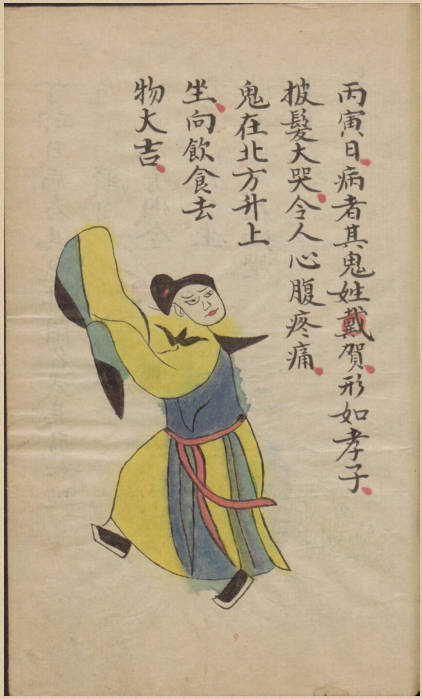 丙寅日病者其鬼姓戴賀形如孝子
披髮大哭令人心腹疼痛
鬼在北方升上
坐向飲食去
物大吉